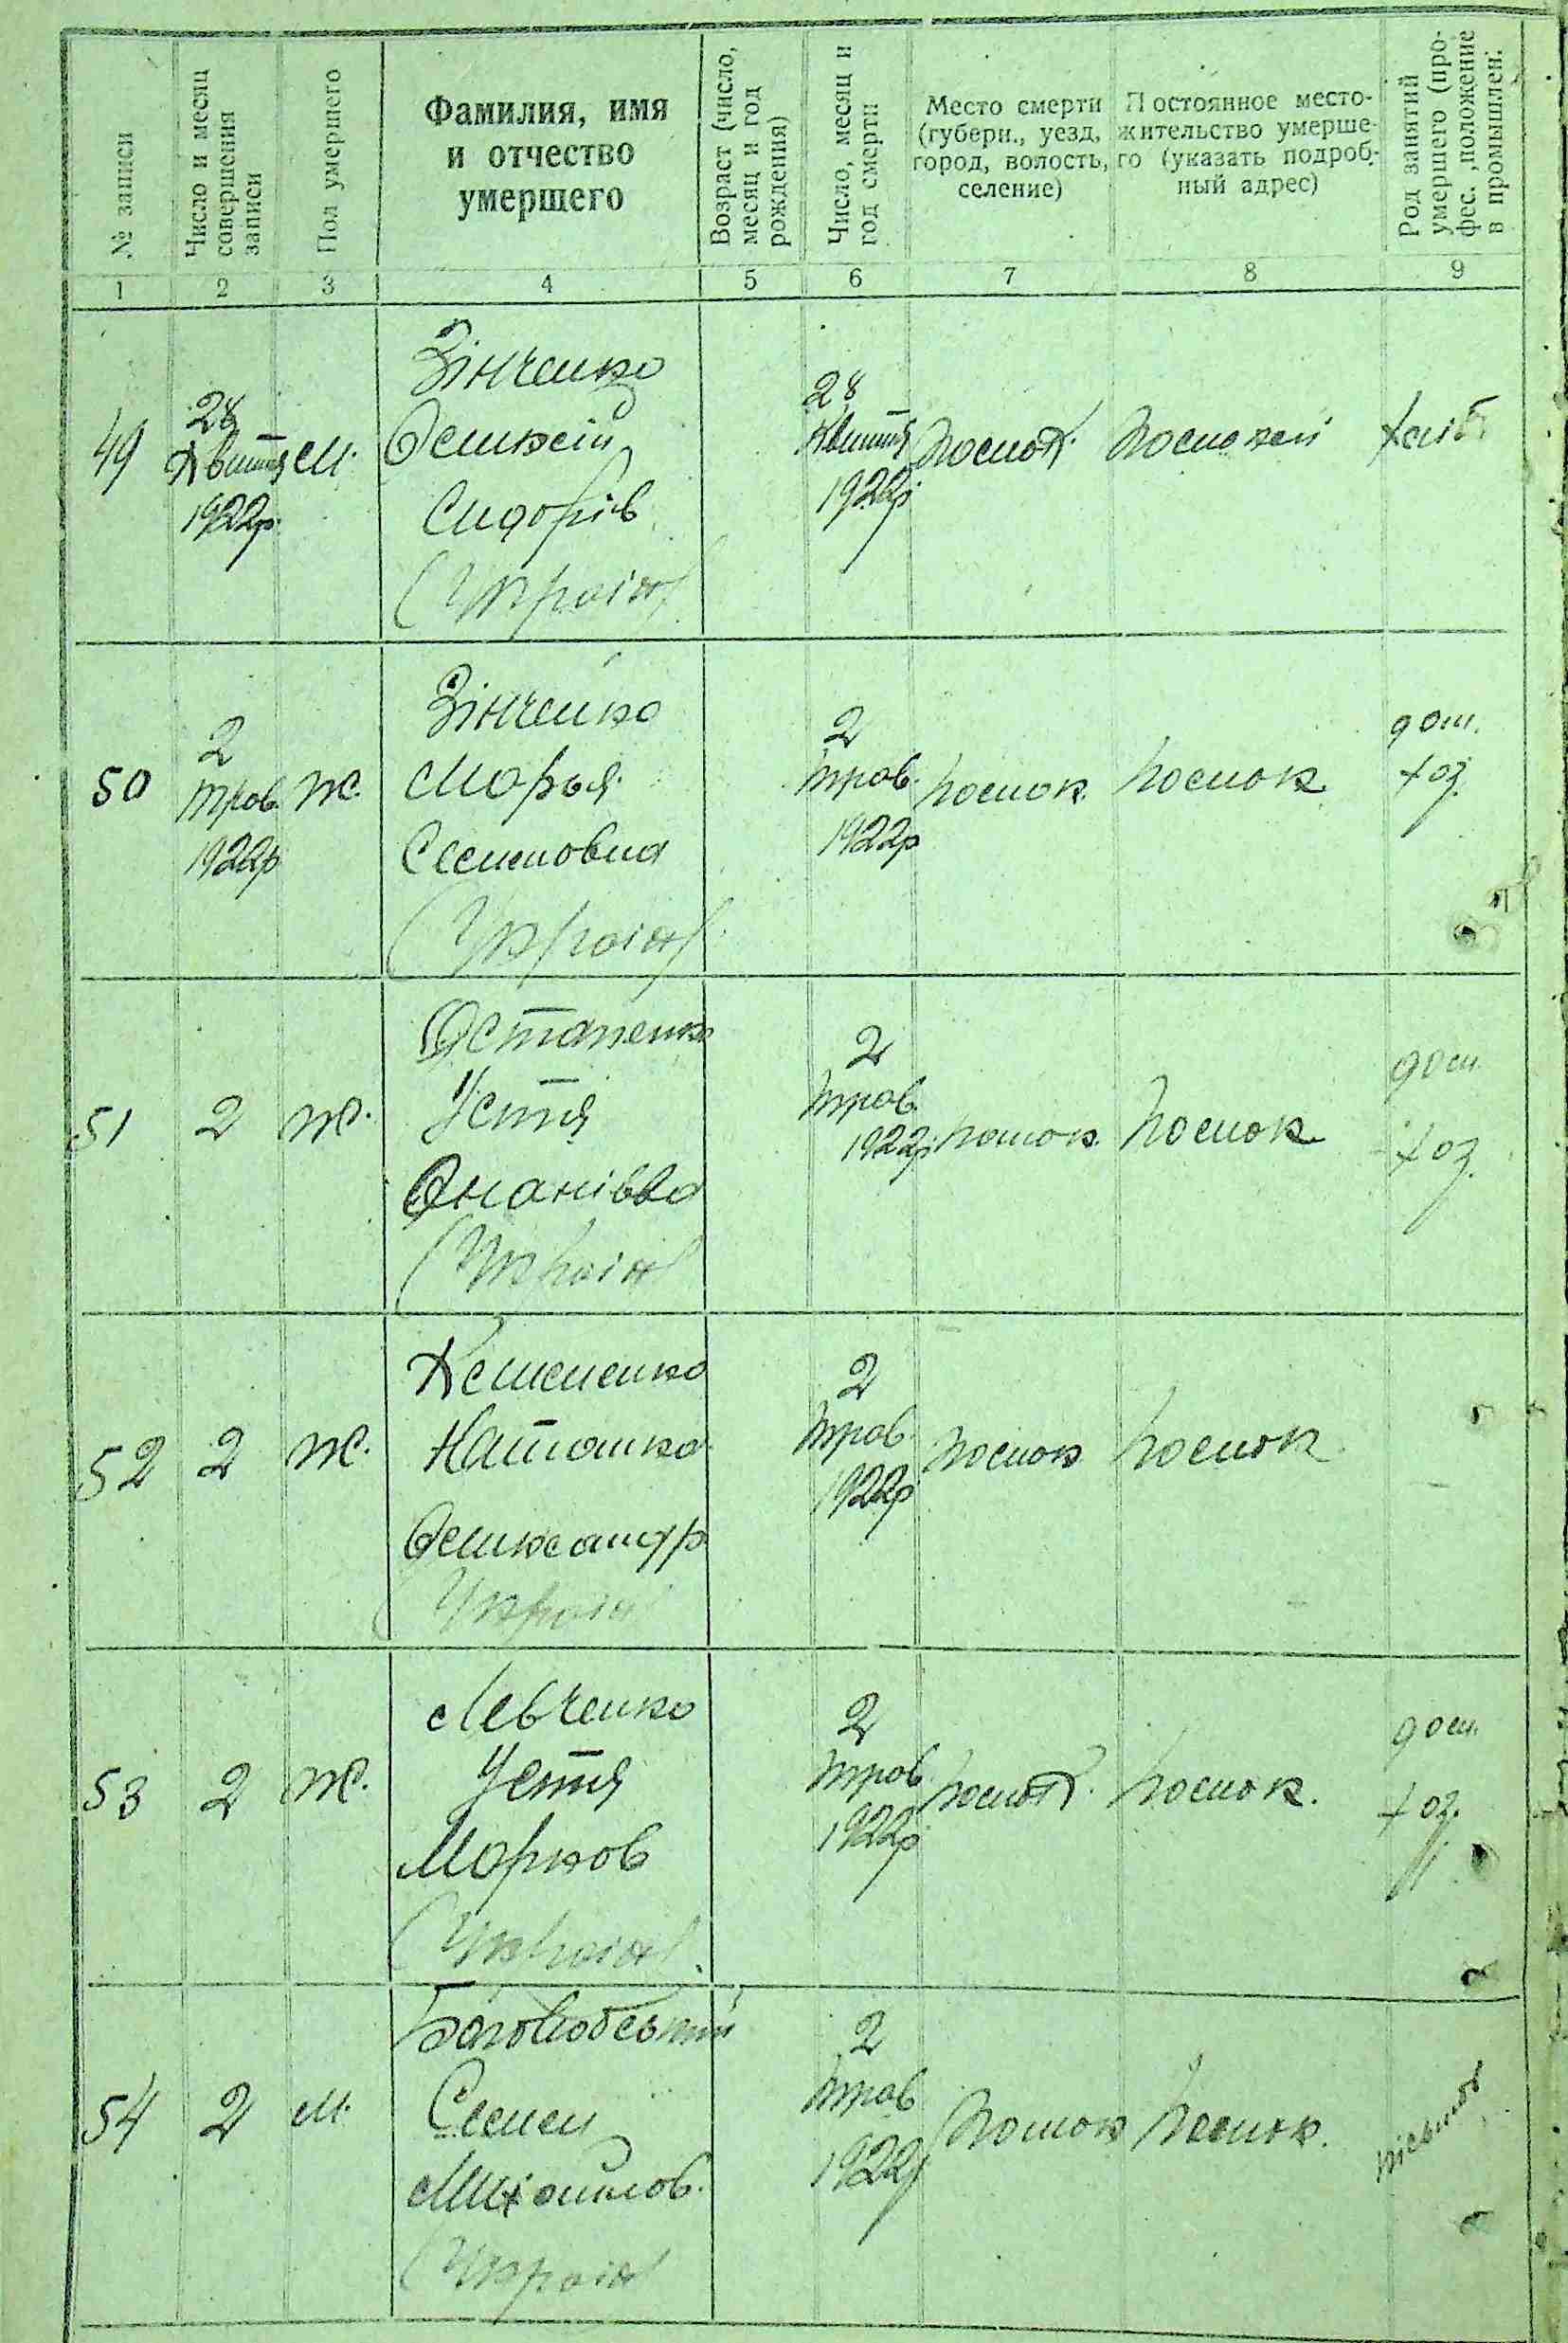 № записи
Число и месяц
совершения
записи
Пол умершего
Фамилия, имя
и отчество
умершего
Возраст (число,
месяц и год
рождения)
Число, месяц и
год смерти
Место смерти
(губерн., уезд,
город, волость,
селение)
Постоянное место-
жительство умерше-
го (указать подроб-
ный адрес)
Род занятий
умершего (про-
фес., положение
в промышлен.
1 2 3 4 5 6 7 8 9
49
28
Квітня
1922р.
М.
Зінченко
Олексій
Сидорів
(Україн)
28
Квітня
1922р.
хліб.
50
2
трав.
1922р
ж.
Зінченко
Марья
Семеновна
(Україн)
2
трав.
1922р
дом.
хоз.
51
2
ж.
Остапенко
Устя
Онанівна
(Україн)
2
трав.
1922р.
дом.
хоз.
52
2
ж.
Клименко
Наташка
Олександр
Україн
2
трав.
1922р
53
2
ж.
Левченко
Устя
Марков
(Україн)
2
трав.
1922р
дом.
хоз.
54
2
М.
Семен
Михайлов.
(Україн)
2
трав
1922р